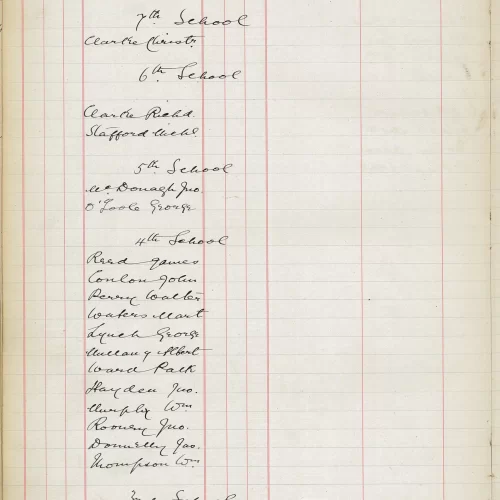 7th School
Clarke Christr.
6th School
Clarke Richd.
Stafford Michl.
5th School
McDonagh Jno.
O'Toole George
4th School
Reed James
Conlon John
Perry Walter
Waters Mart
Lynch George
Mullany Albert
Ward Patk
Hayden Jno.
Murphy Wm
Rooney Jno.
Donnelly Jas.
Thompson Wm
School